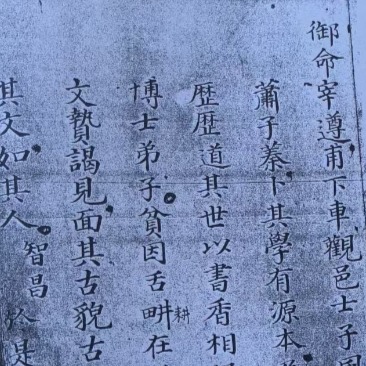 御命宰遵甫下車觀邑士子
蕭子蓁卜其學有源本
歷歷道其世以書香相
博士弟子貧因舌畊耕在
文贄謁見面其古貌古
其文如其人智昌於是